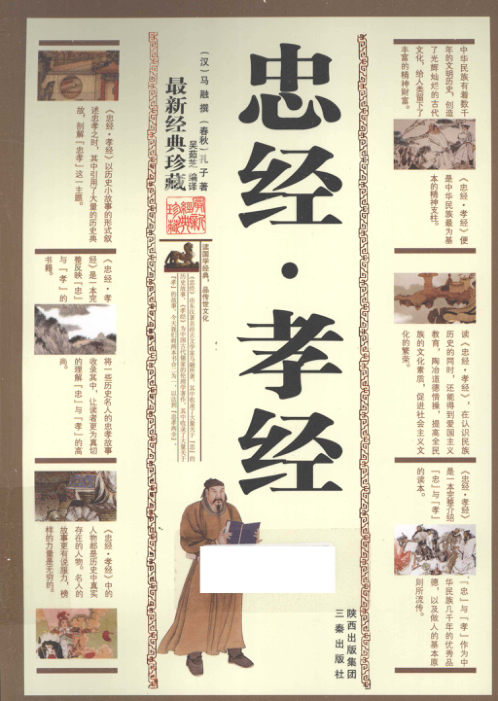 忠经·孝经
（汉）马融 撰 （春秋）孔子 著
吴茹芝 编译
最新经典珍藏
最新
经典
珍藏
读国学经典，品传世文化
陕西出版集团
三秦出版社
中华民族有着数千
年的文明历史，创造
了光辉灿烂的古代
文化，给人类留下了
丰富的精神财富。
《忠经·孝经》便
是中华民族最为基
本的精神支柱。
读《忠经·孝经》，在认识民族
历史的同时，还能得到爱国主义
教育，陶冶道德情操，提高全民
族的文化素质，促进社会主义文
化的繁荣。
《忠经·孝经》
是一本完整介绍
“忠”与“孝”
的读本。
“忠”与“孝”作为中
华民族几千年的优秀品
德，以及做人的基本原
则所流传。
《忠经·孝经》以历史小故事的形式叙
述忠孝之时，其中引用了大量的历史典
故，剖解“忠孝”这一主题。
《忠经·孝
经》是一本完
整反映“忠”
与“孝”的
书籍。
将一些历史名人的忠孝故事
收录其中，让读者更为真切
的理解“忠”与“孝”的高
尚。
《忠经·孝经》中的
人物都是历史中真实
存在的人物。名人的
故事更有说服力，榜
样的力量是无穷的。